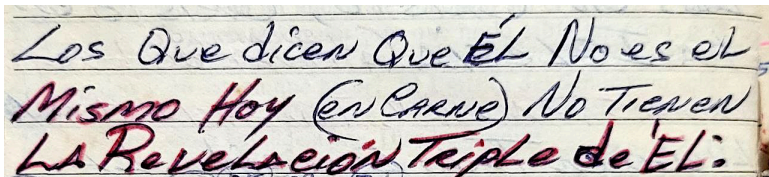 Los Que dicen Que ÉL No es eL
Mismo Hoy (en CARNE) No TIENEN
LA ReveLAcióN TripLe de ÉL: